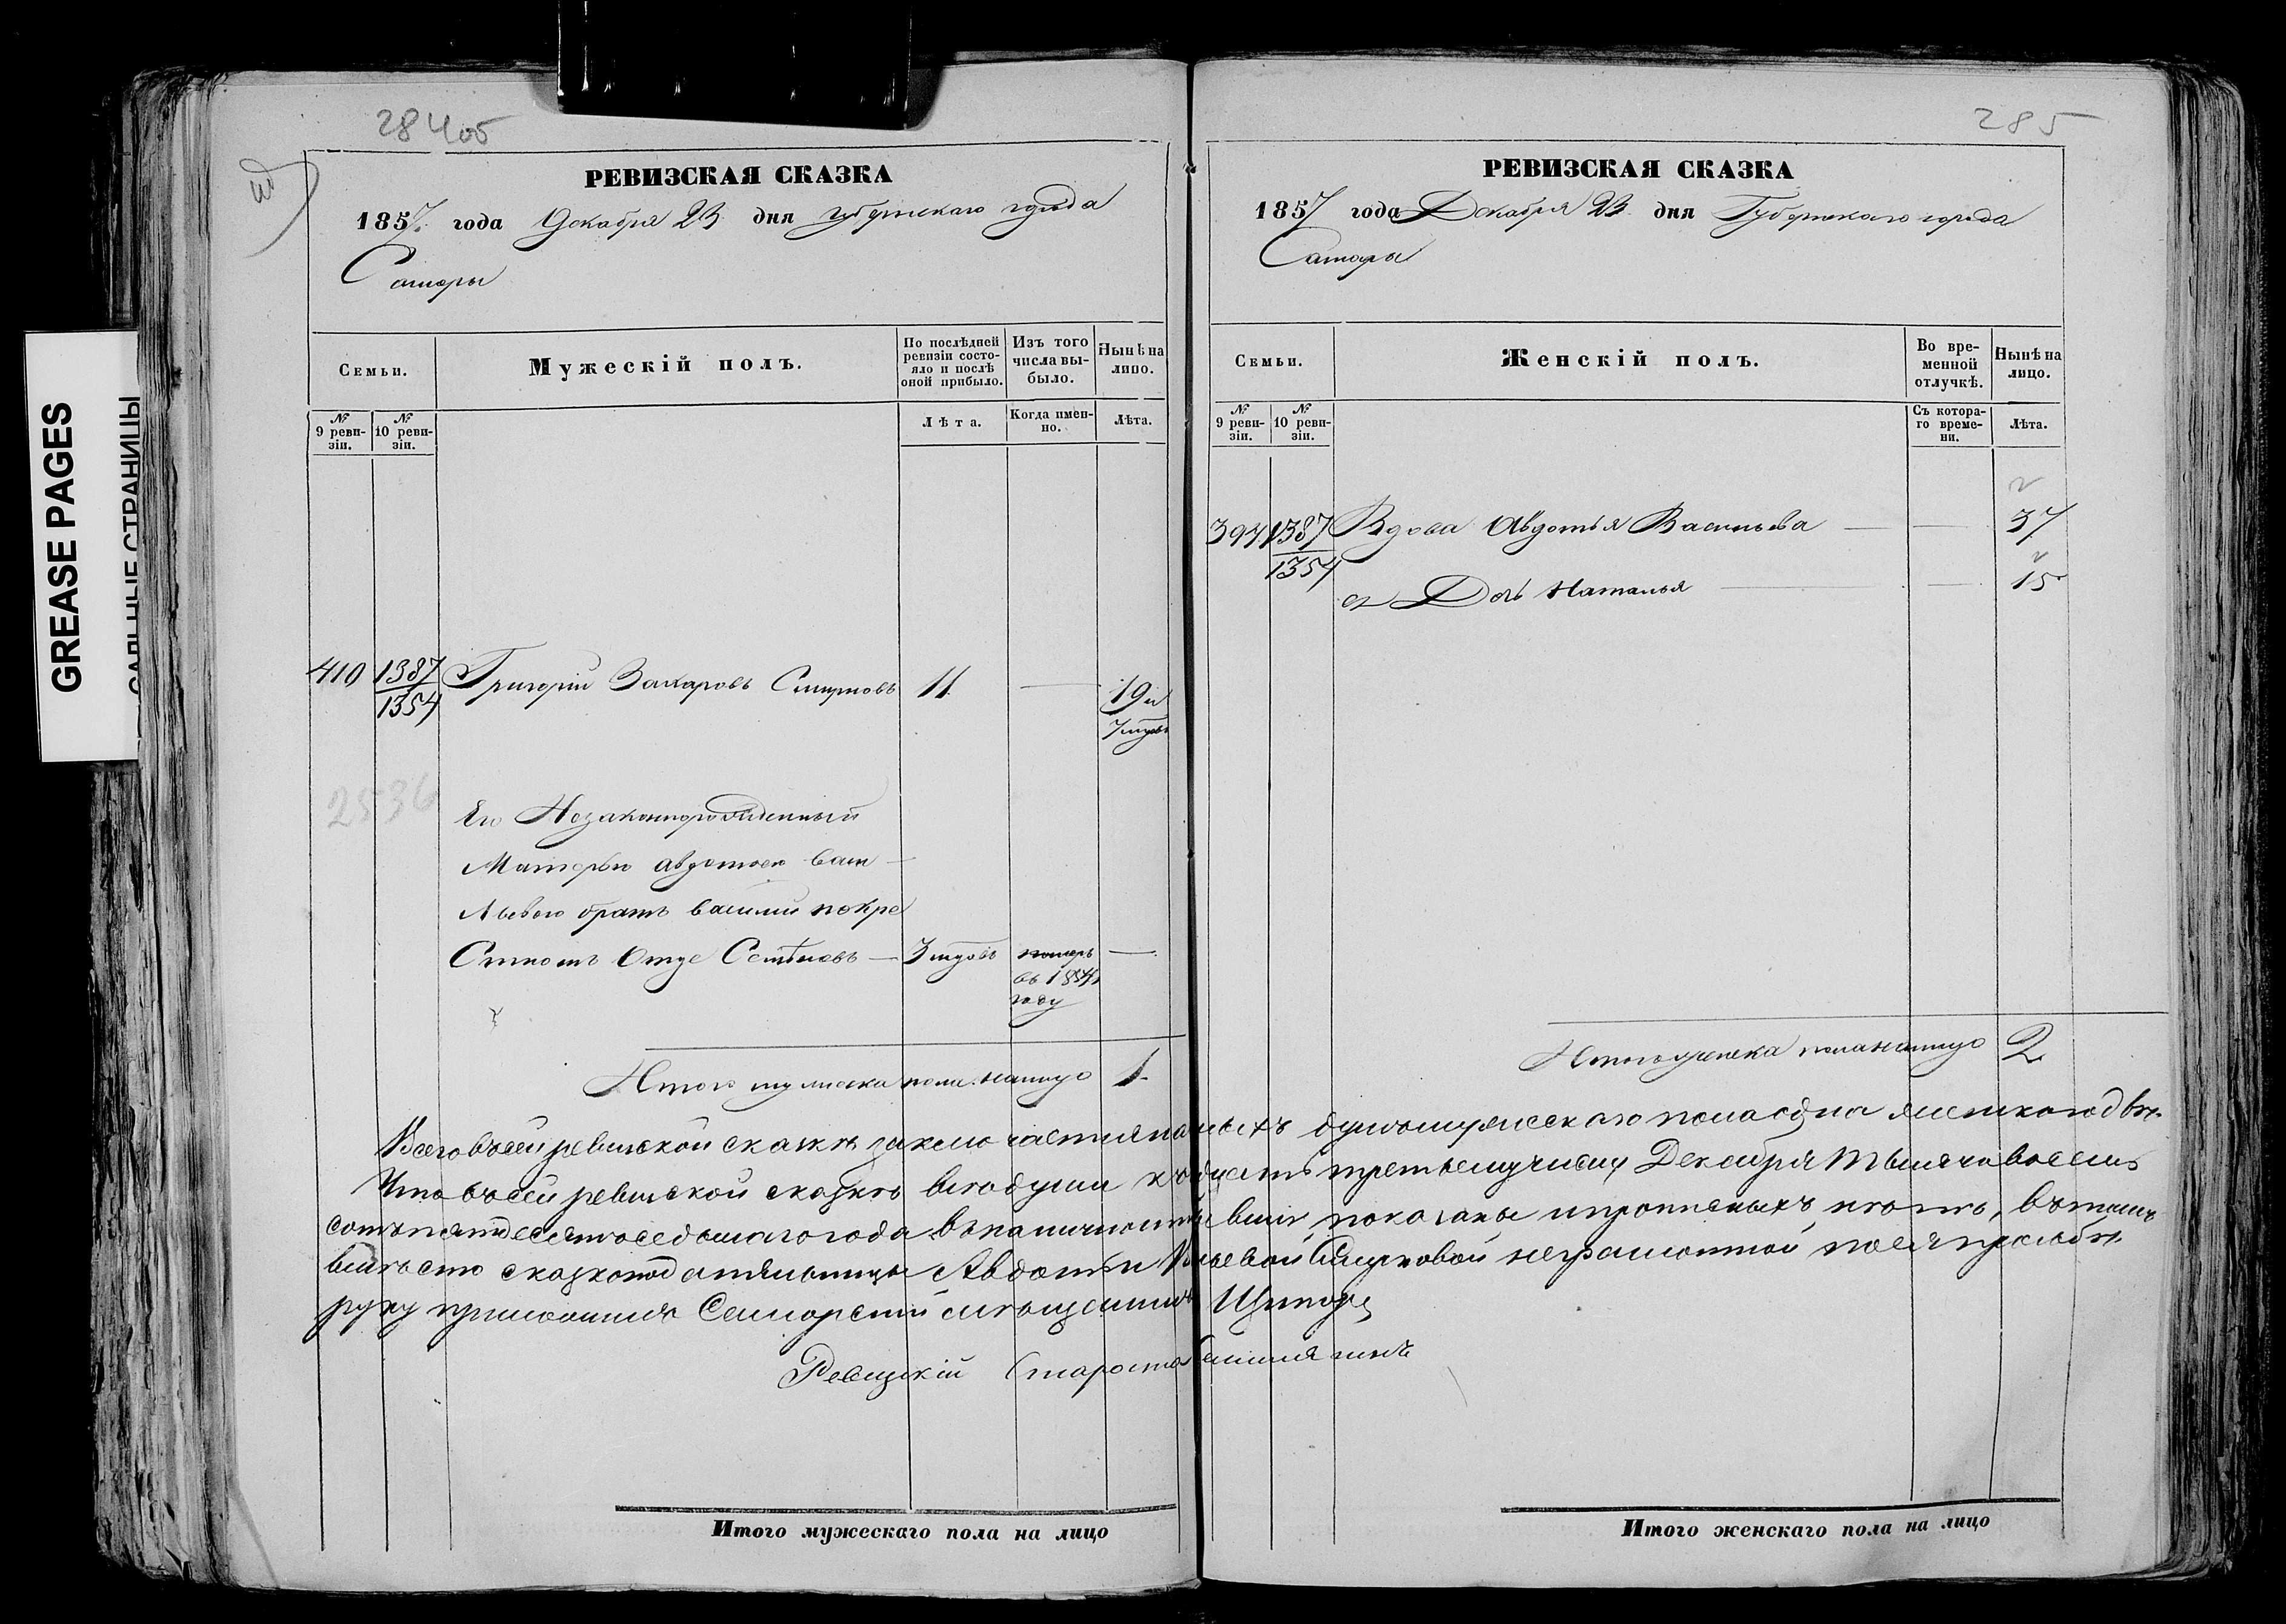 GREASE PAGES
САЛЬНЫЕ СТРАНИЦЫ
284об
РЕВИЗСКАЯ СКАЗКА
1857. года Декабря 23 дня губернскаго города
Самары
Семьи.
Мужескій полъ.
По послѣдней ревизіи состояло и послѣ оной прибыло.
Изъ того числа выбыло.
Нынѣ на лицо.
№ 9 ревизіи.
№ 10 ревизіи.
Лѣта.
Когда именно.
Лѣта.
410 1387 Григорій Захаровъ Смирновъ 11 — 19 и
1354
2536
Его Незаконнорожденный
Матерью Авдотьею Васи—
льевою братъ Василій по кре
стномъ Отце — 3 померъ —
въ 1854
году
Итого мужеска пола налицо 1
285
РЕВИЗСКАЯ СКАЗКА
1857 года Декабря 23 дня Губернскаго города
Самары
Семьи.
Женскій полъ.
Во временной отлучкѣ.
Нынѣ на лицо.
№ 9 ревизіи.
№ 10 ревизіи.
Съ котораго времени.
Лѣта.
394 1387 Вдова Авдотья Васильева — — 37
1354
ея Дочь Наталья — — 15
Итого женска пола налицо 2
Всего въ сей ревизской сказкѣ душъ мужескаго пола одна женскаго двѣ.
Что въ сей ревизской сказкѣ всѣ души къ третьему числу Декабря тысяча восемь
сотъ пятдесятъ седьмаго года въ показаны и пропненыхъ нѣтъ, въ томъ
вмѣсто сказкоподательницы Авдотьи Смирновой неграмотной по ея прозьбѣ
руку приложилъ Самарскій мѣщанинъ
Ревизскій Староста
Итого мужескаго пола на лицо
Итого женскаго пола на лицо